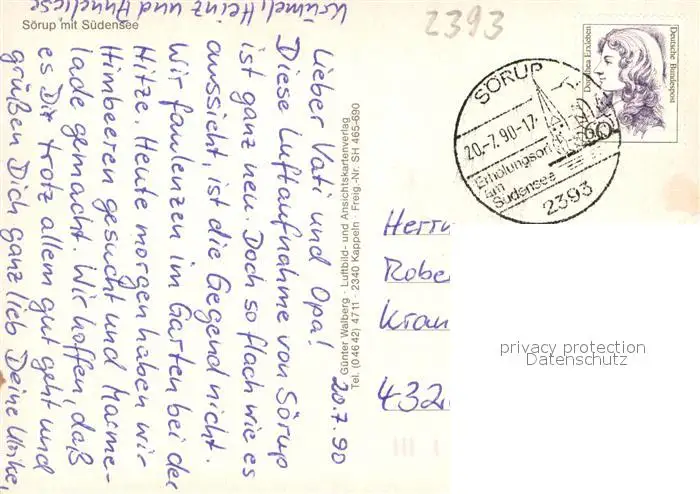 Sörup mit Südensee
2393
Deutsche Bundespost
Dorothea Erxleben
60
SÖRUP
20.-7.90-17
Erholungsort
am
Südensee
2393
20.7.90
Lieber Vati und Opa!
Diese Luftaufnahme von Sörup
ist ganz neu. Doch so flach wie es
aussieht, ist die Gegend nicht.
Wir faulenzen im Garten bei der
Hitze. Heute morgen haben wir
Himbeeren gesucht und Marme-
lade gemacht. Wir hoffen, daß
es Dir trotz allem gut geht und
grüßen Dich ganz lieb Deine Ulrike,
Krümel, Heinz und Anneliese
Günter Walberg · Luftbild- und Ansichtskartenverlag
Tel. (04642) 4711 · 2340 Kappeln · Freig.-Nr. SH 465-690
Herrn
Rober
Kran
432
privacy protection
Datenschutz